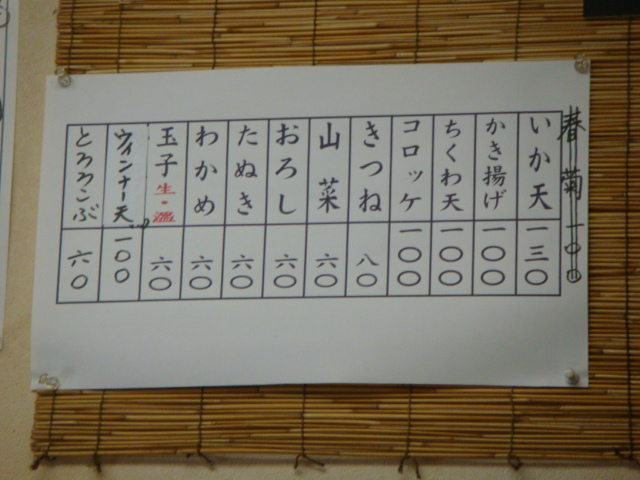 春菊 一〇〇
いか天 一三〇
かき揚げ 一〇〇
ちくわ天 一〇〇
コロッケ 一〇〇
きつね 八〇
山菜 六〇
おろし 六〇
たぬき 六〇
わかめ 六〇
玉子 生・温 六〇
ウィンナー天 一〇〇
とろろこぶ 六〇